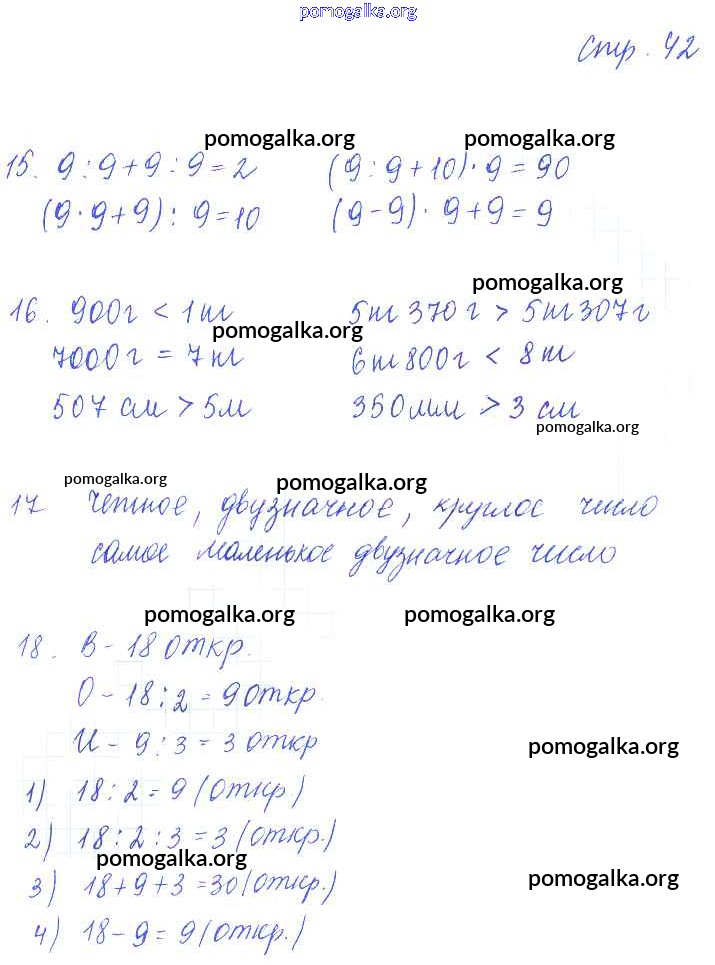 pomogalka.org
стр. 42
pomogalka.org pomogalka.org
15. 9 : 9 + 9 : 9 = 2 (9 : 9 + 10) · 9 = 90
(9 · 9 + 9) : 9 = 10 (9 - 9) · 9 + 9 = 9
pomogalka.org
16. 900г < 1 кг 5кг 370 г > 5кг 307г
pomogalka.org
7000 г = 7 кг 6кг 800г < 8 кг
507 см > 5м 350мм > 3 см
pomogalka.org
pomogalka.org pomogalka.org
17 Четное, двузначное, круглое число
самое маленькое двузначное число
pomogalka.org pomogalka.org
18. В - 18 откр.
О - 18 : 2 = 9 откр.
И - 9 : 3 = 3 откр
pomogalka.org
1) 18 : 2 = 9 (откр.)
2) 18 : 2 : 3 = 3 (откр.)
pomogalka.org
3) 18 + 9 + 3 = 30 (откр.)
pomogalka.org
4) 18 - 9 = 9 (откр.)